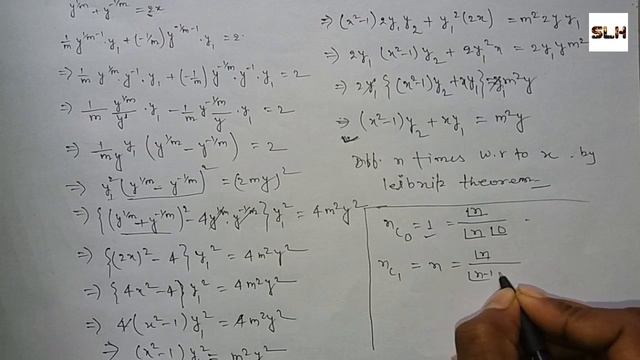 y^{1/m} + y^{-1/m} = 2x
1/m y^{1/m-1}.y₁ + (-1/m) y^{-1/m-1}.y₁ = 2.
⇒ 1/m y^{1/m}.y^{-1}.y₁ + (-1/m) y^{-1/m}.y^{-1}.y₁ = 2
⇒ 1/m y^{1/m}/y .y₁ - 1/m y^{-1/m}/y .y₁ = 2
⇒ 1/my y₁ (y^{1/m} - y^{-1/m}) = 2
⇒ y₁² (y^{1/m} - y^{-1/m})² = (2my)²
⇒ {(y^{1/m} + y^{-1/m})² - 4y^{1/m}.y^{-1/m}} y₁² = 4m²y²
⇒ {(2x)² - 4} y₁² = 4m²y²
⇒ {4x² - 4} y₁² = 4m²y²
⇒ 4(x² - 1) y₁² = 4m²y²
⇒ (x² - 1) y₁² = m²y²
⇒ (x² - 1) 2y₁y₂ + y₁²(2x) = m² 2y y₁
⇒ 2y₁ (x² - 1) y₂ + 2y₁²x = 2y₁ y m²
⇒ 2y₁ {(x² - 1) y₂ + xy₁} = 2y₁ m²y
⇒ (x² - 1) y₂ + xy₁ = m²y
Diff. n times w.r to x . by
leibnitz theorem
ⁿC₀ = 1 = |n / |n |0 .
ⁿC₁ = n = |n / |n-1
SLH